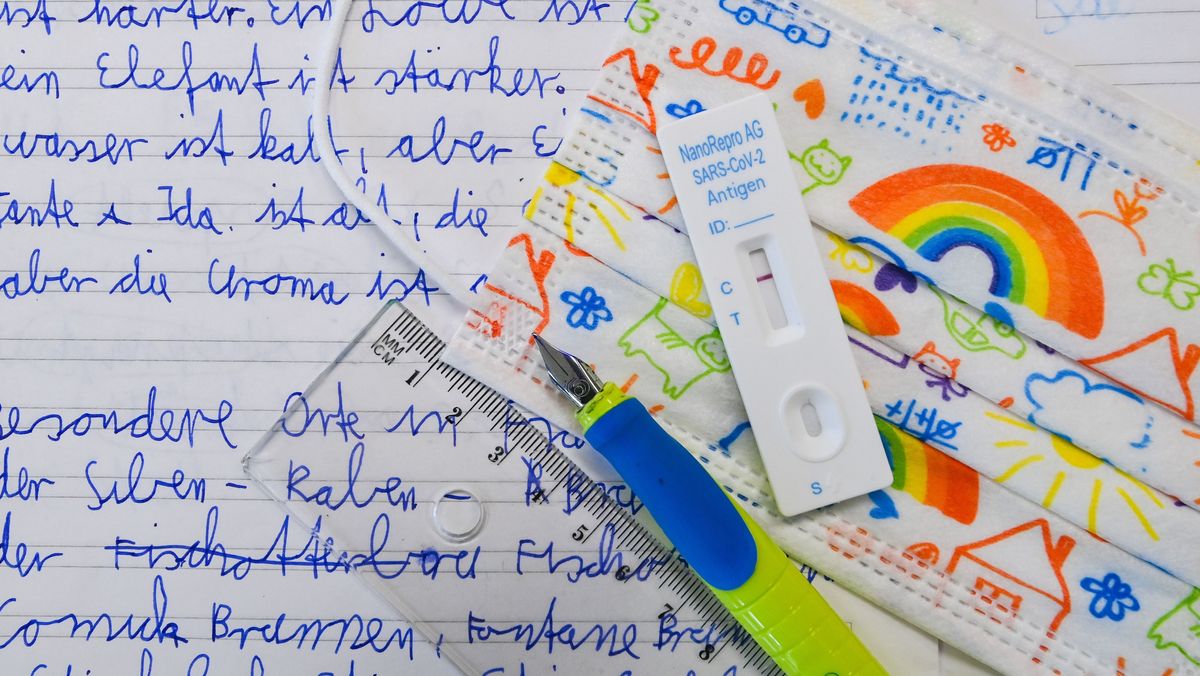 ist härter. Ein Löwe ist
ein Elefant ist stärker.
wasser ist kalt, aber Ei
Tante Ida. ist alt, die
aber die Uroma ist
Besondere Orte in
der Silben - Raben -
der Fischotterbau
Brunnen, Fontane
NanoRepro AG
SARS-CoV-2
Antigen
ID:
C
T
S
MM
CM
1
2
3
4
5
6
7
8